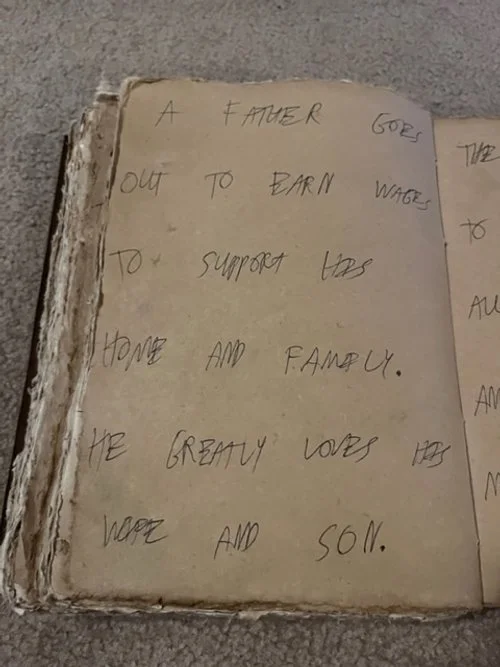 A FATHER GOES
OUT TO EARN WAGES
TO SUPPORT HIS
HOME AND FAMILY.
HE GREATLY LOVES HIS
WIFE AND SON.
THE
TO